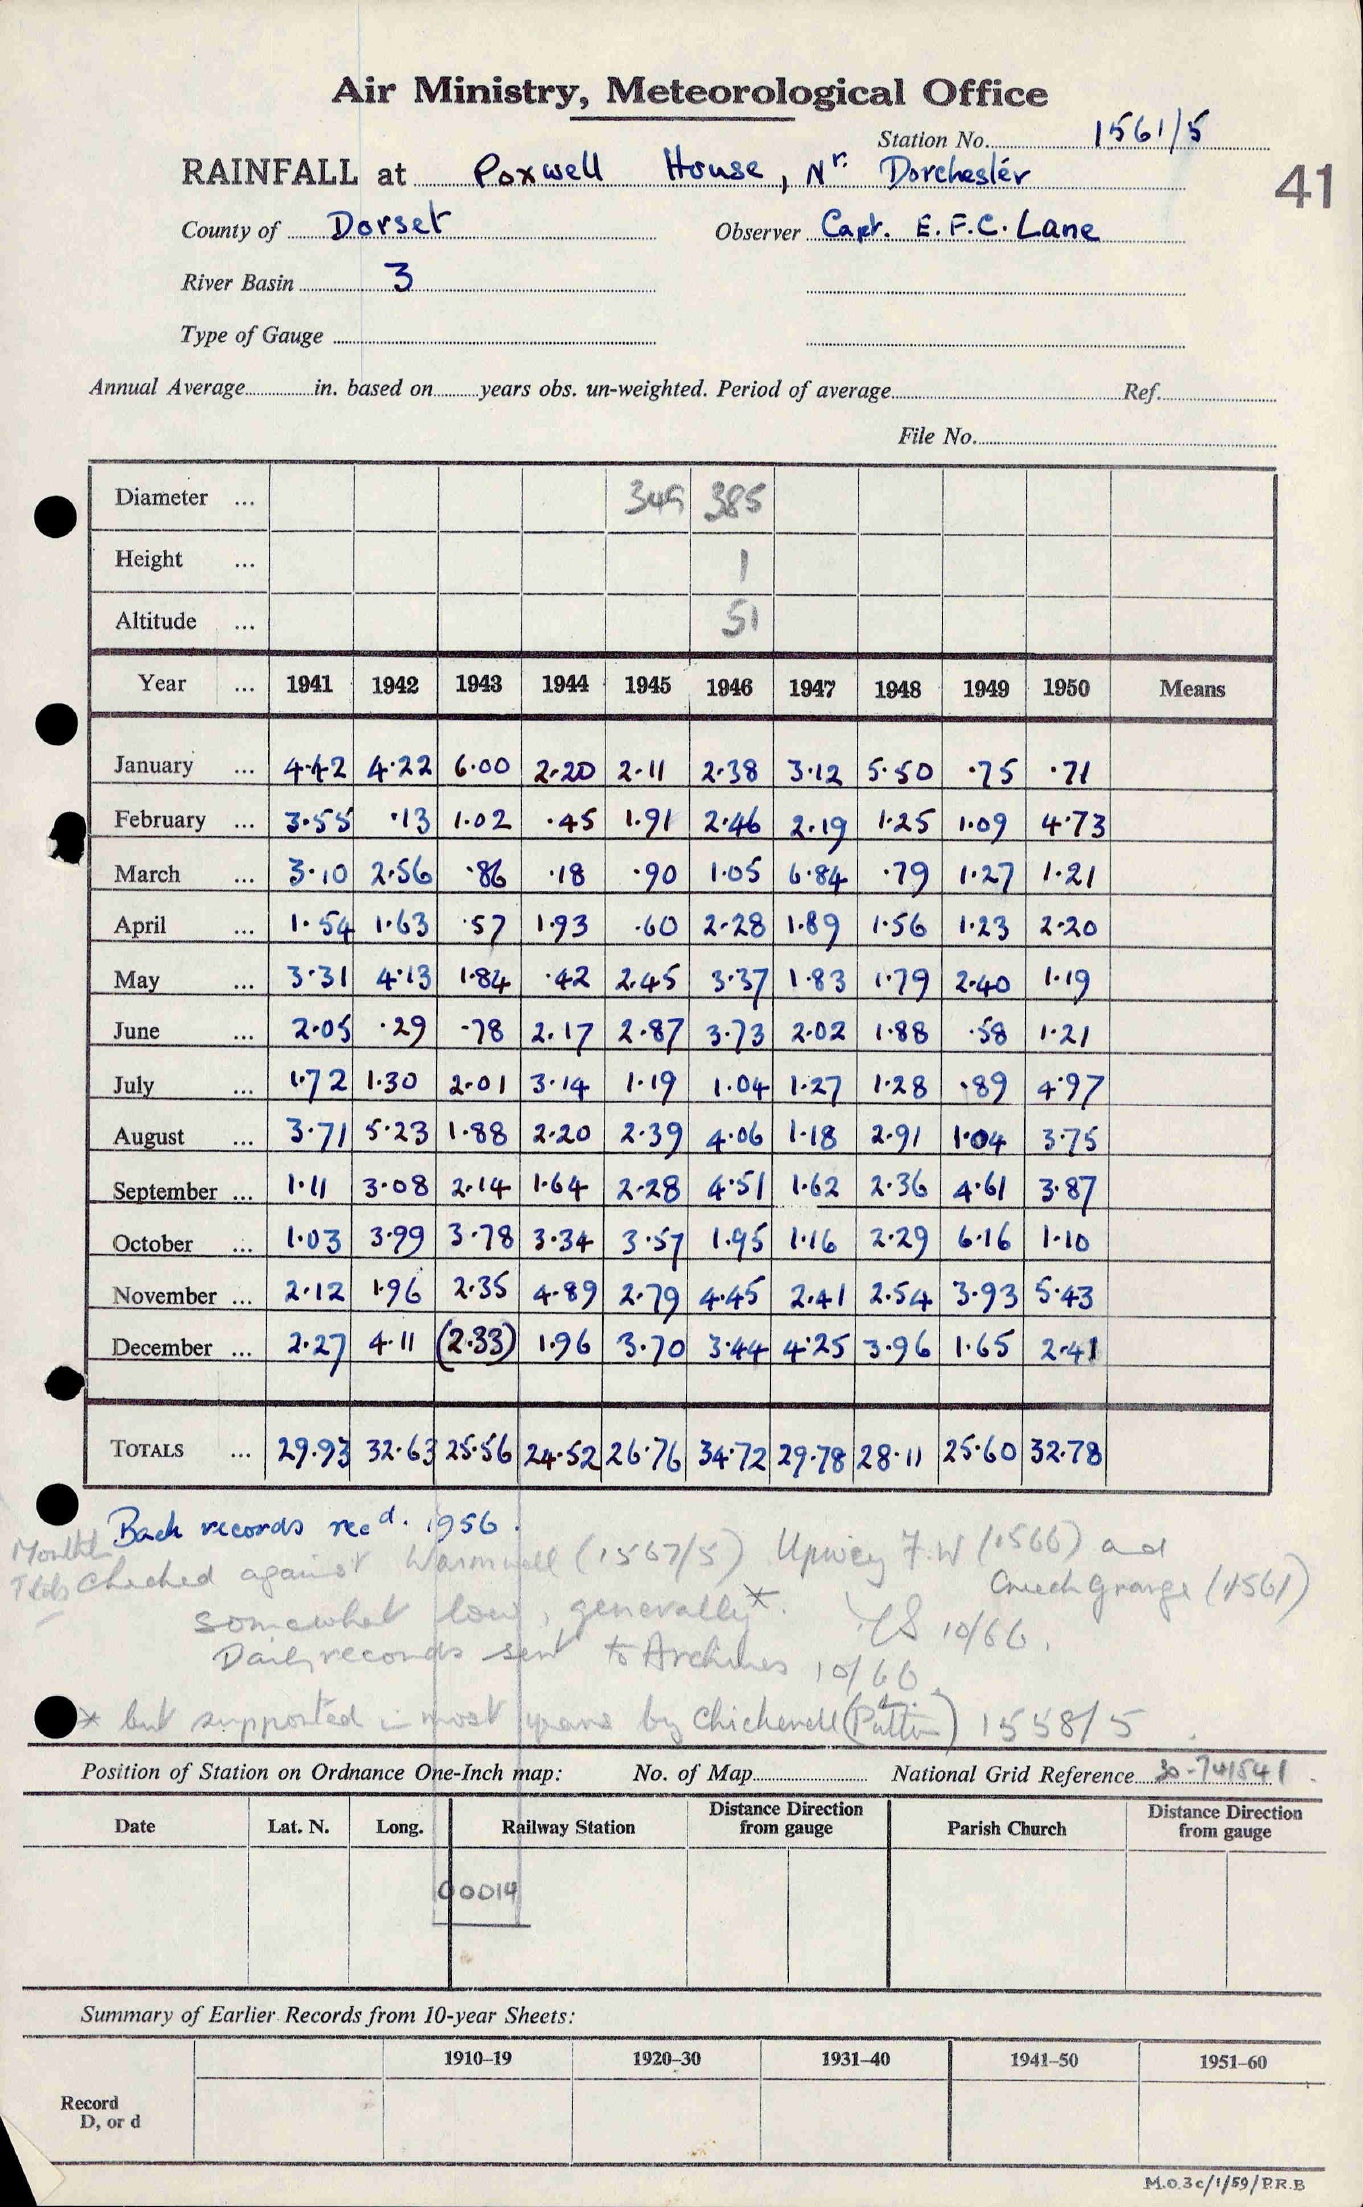 Air Ministry, Meteorological Office
Station No. 1561/5
RAINFALL at Poxwell House, Nr. Dorchester
41
County of Dorset Observer Capt. E.F.C. Lane
River Basin 3
Type of Gauge
Annual Average in. based on years obs. un-weighted. Period of average Ref.
File No.
Diameter ... 349 385
Height ... 1
Altitude ... 51
Year ... 1941 1942 1943 1944 1945 1946 1947 1948 1949 1950 Means
January ... 4.42 4.22 6.00 2.20 2.11 2.38 3.12 5.50 .75 .71
February ... 3.55 .13 1.02 .45 1.91 2.46 2.19 1.25 1.09 4.73
March ... 3.10 2.56 .86 .18 .90 1.05 6.84 .79 1.27 1.21
April ... 1.54 1.63 .57 1.93 .60 2.28 1.89 1.56 1.23 2.20
May ... 3.31 4.13 1.84 .42 2.45 3.37 1.83 1.79 2.40 1.19
June ... 2.05 .29 .78 2.17 2.87 3.73 2.02 1.88 .58 1.21
July ... 1.72 1.30 2.01 3.14 1.19 1.04 1.27 1.28 .89 4.97
August ... 3.71 5.23 1.88 2.20 2.39 4.06 1.18 2.91 1.04 3.75
September ... 1.11 3.08 2.14 1.64 2.28 4.51 1.62 2.36 4.61 3.87
October ... 1.03 3.99 3.78 3.34 3.57 1.95 1.16 2.29 6.16 1.10
November ... 2.12 1.96 2.35 4.89 2.79 4.45 2.41 2.54 3.93 5.43
December ... 2.27 4.11 (2.33) 1.96 3.70 3.44 4.25 3.96 1.65 2.41
TOTALS ... 29.93 32.63 25.56 24.52 26.76 34.72 29.78 28.11 25.60 32.78
Back records recd. 1956.
Checked against Warmwell (1567/5) Upwey F.W (1566) and
Creech Grange (1561)
somewhat low, generally*. 10/66.
Daily records sent to Archives 10/66.
* but supported in most years by Chickerell 1558/5
Position of Station on Ordnance One-Inch map: No. of Map National Grid Reference 30-741541
Date Lat. N. Long. Railway Station Distance Direction from gauge Parish Church Distance Direction from gauge
00014
Summary of Earlier Records from 10-year Sheets:
1910–19 1920–30 1931–40 1941–50 1951–60
Record
D, or d
M.O.3c/1/59/P.R.B